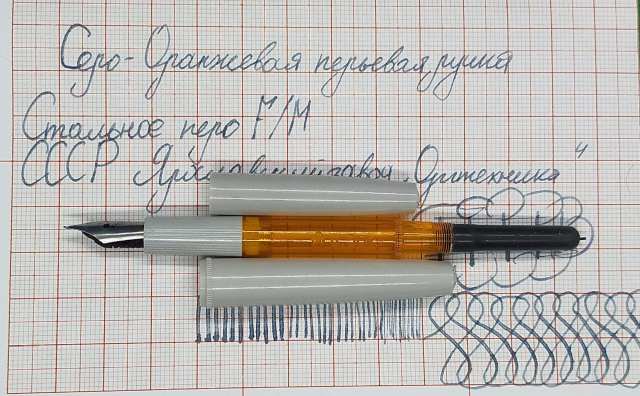 Серо-Оранжевая перьевая ручка
Стальное перо F/M
СССР "Оргтехника"